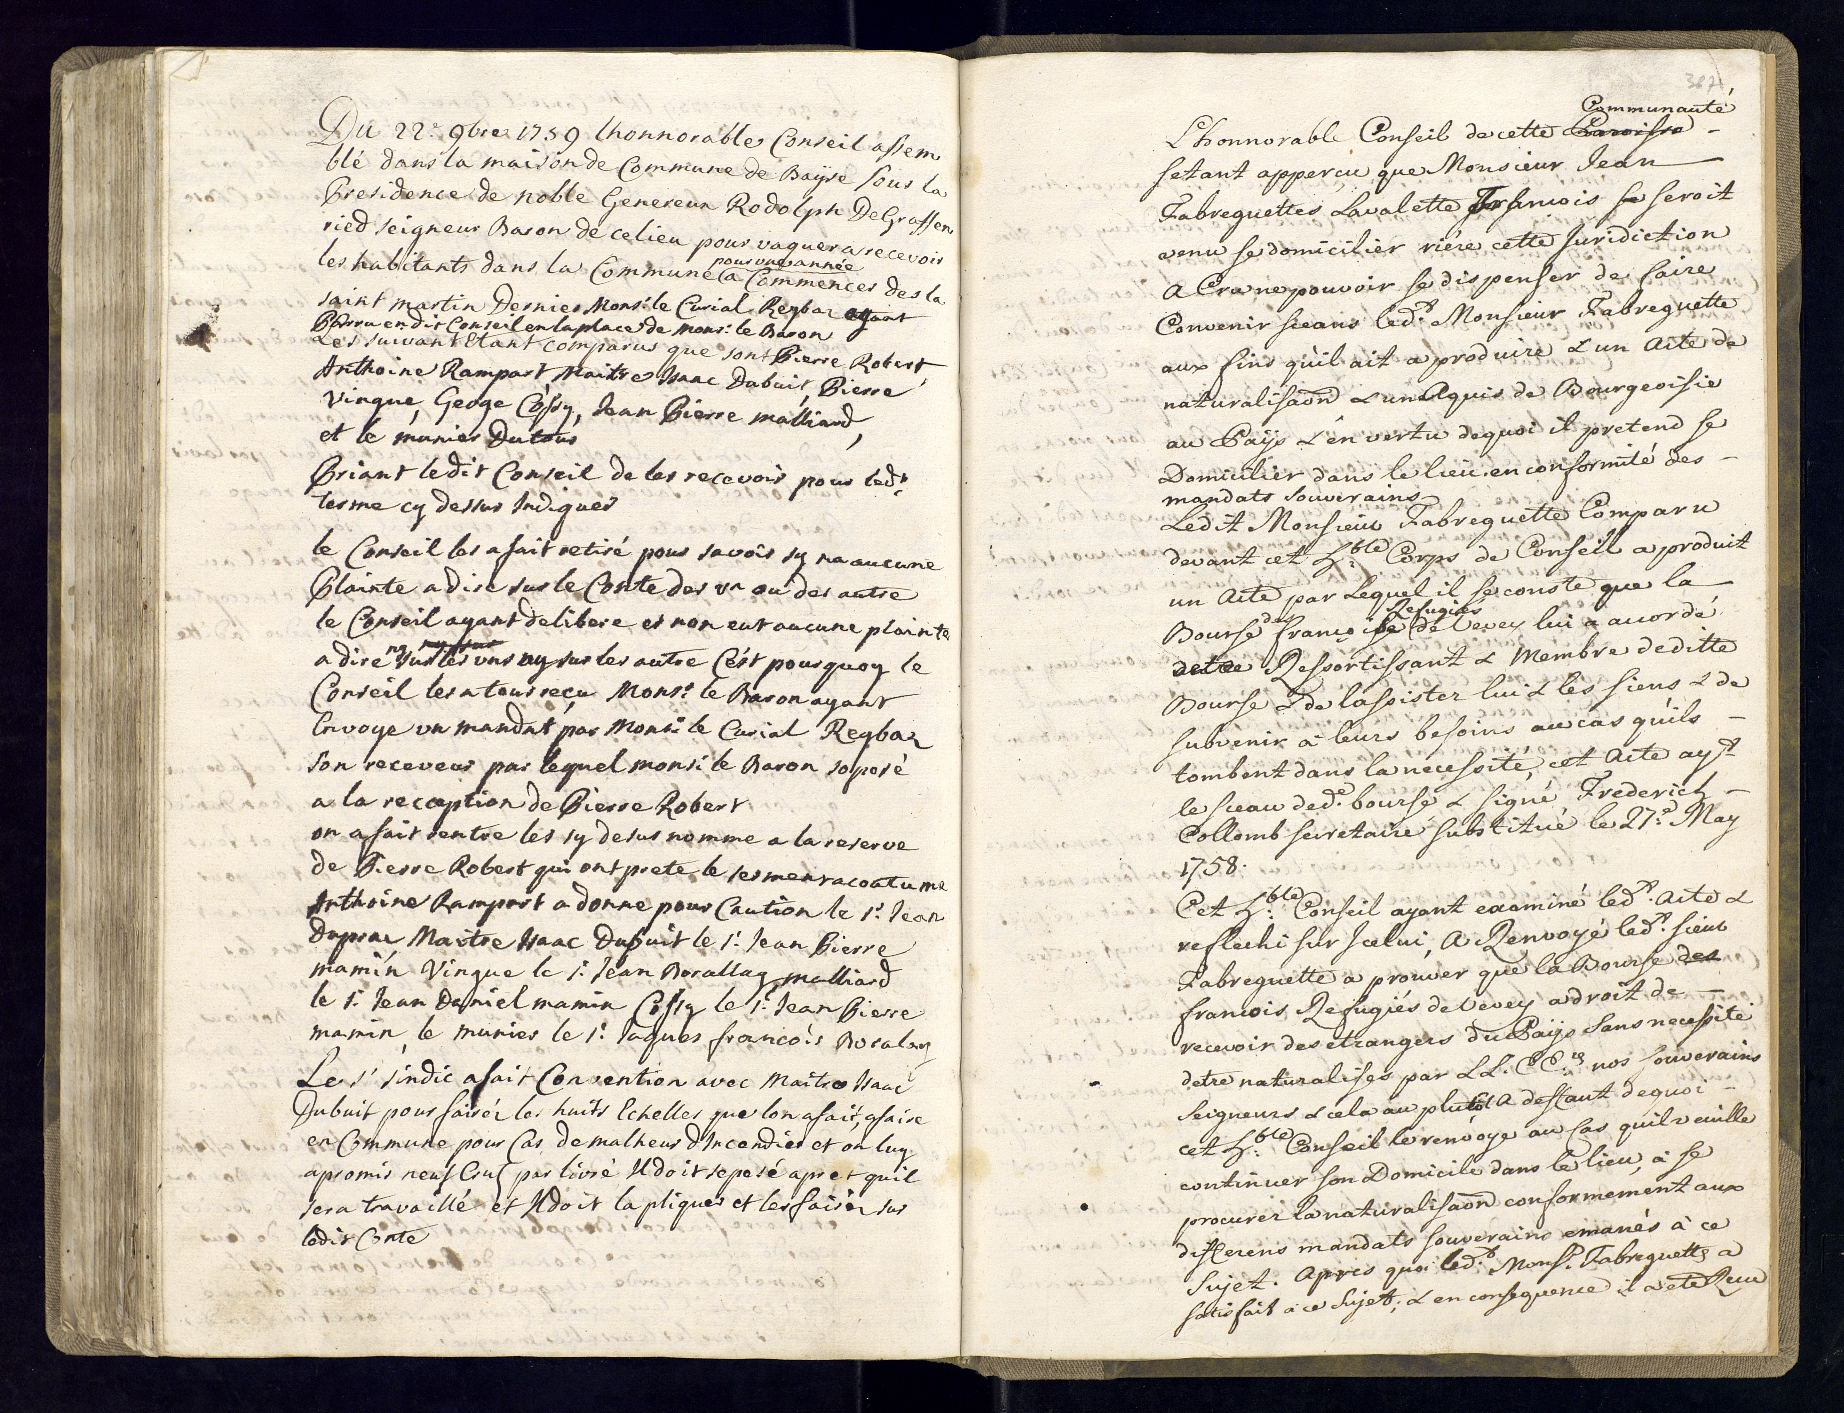 Du 22.e 9bre 1759 lhonnorables Conseil assem
blé dans la maison de Commune de Bayse sous la
Presidence de noble Genereux Rodolph DeGraffen
ried seigneur Baron de celieu pour vaquer a recevoir
pour une année
les habitants dans la Commune a Commences des la
saint martin Dernier Mons.r le Curial Regbaz ayant
Parru endit Conseil en la place de mons.r le Baron
Les suivant Etant comparus que sont Pierre Robert
Anthoine Rampart Maitre Isaac Dubuit, Pierre
Vinque, Geoge Cossy, Jean Pierre malliard,
et le munier Dutour
Priant ledit Conseil de les recevoir pour led.t
terme cy dessus Indiquer
le Conseil les a fait retiré pour savoir sy na aucune
Plainte a dire sur le Conte des un ou des autre
le Conseil ayant delibere et non eut aucune plainte
a dire ny sur les uns ny sur les autre C'est pourquoy le
Conseil les a tous reçu Mons.r le Baron ayant
Envoye un mandat par Mons.r le Curial Regbaz
son receveur par lequel monsi le Baron soposé
a la recception de Pierre Robert
on a fait rentre les sy desus nomme a la reserve
de Pierre Robert qui ont prete le serment acoutume
Anthoine Rampart a donne pour Caution le s.r Jean
Duprax Maitre Isaac Dubuit le s.r Jean Pierre
mamin Vinque le s.r Jean Bocallaz malliard
le s.r Jean Daniel mamin Cossy le s.r Jean Pierre
mamin, le munier le s.r Jaques françois Bocalaz
Le s.r sindic a fait Convention avec Maitre Isaac
Dubuit pour faiser les huits Echelles que lon a fait, afaire
en Commune pour Cas de malheur d'Incendier et on luy
a promis neuf Cruz par livré Il doit se pesé apret quil
sera travaillé et Il doit la pliquer et les faiser sur
ledit Conte
387
Communauté
L'honnorable Conseil de cette Paroisse -
setant apperçu que Monsieur Jean
Fabreguettes Lavalette François se seroit
venu se domicilier riére cette Juridiction
a Cru ne pouvoir se dispenser de faire
Convenir sceans led.t Monsieur Fabreguette
aux fins quil ait a produire & un Acte de
naturalisaōn & un Aquis de Bourgeoisie
au Païs & en vertu dequoi il pretend se
Domicilier dans le lieu en conformité des -
mandats souverains
Ledit Monsieur Fabreguette Comparu
devant cet H.ble Corps de Conseil a produit
un Acte par Lequel il se conste que la
Refugiés
Bourse des françoise de Vevey lui a accordé
detre Ressortissant & Membre deditte
Bourse & de lassister lui & les siens & de
subvenir à leurs besoins au cas qu'ils -
tombent dans la necessité, cet Acte ay.t
le sceau de d.e bourse & signé, Frederich -
Collomb secretaire substitué le 27.e May
1758.
Cet H.ble Conseil ayant examiné led.t Acte &
reflechi sur Icelui, A Renvoyé led.t sieur
Fabreguette a prouver que la Bourse des
francois Refugiés de Vevey a droit de -
recevoir des etrangers du Païs sans necessité
detre naturalises par LL. EE.ces nos souverains
Seigneurs & cela au plutôt A deffaut dequoi -
cet H.ble Conseil le renvoye au Cas quil veuille
continuer son Domicile dans le lieu, à se
procurer la naturalisaōn conformement aux
differens mandats souverains emanés à ce
sujet. Apres quoi led.t Mons.r Fabreguette a
satisfait à ce Sujet; & en consequence il a été Reçu